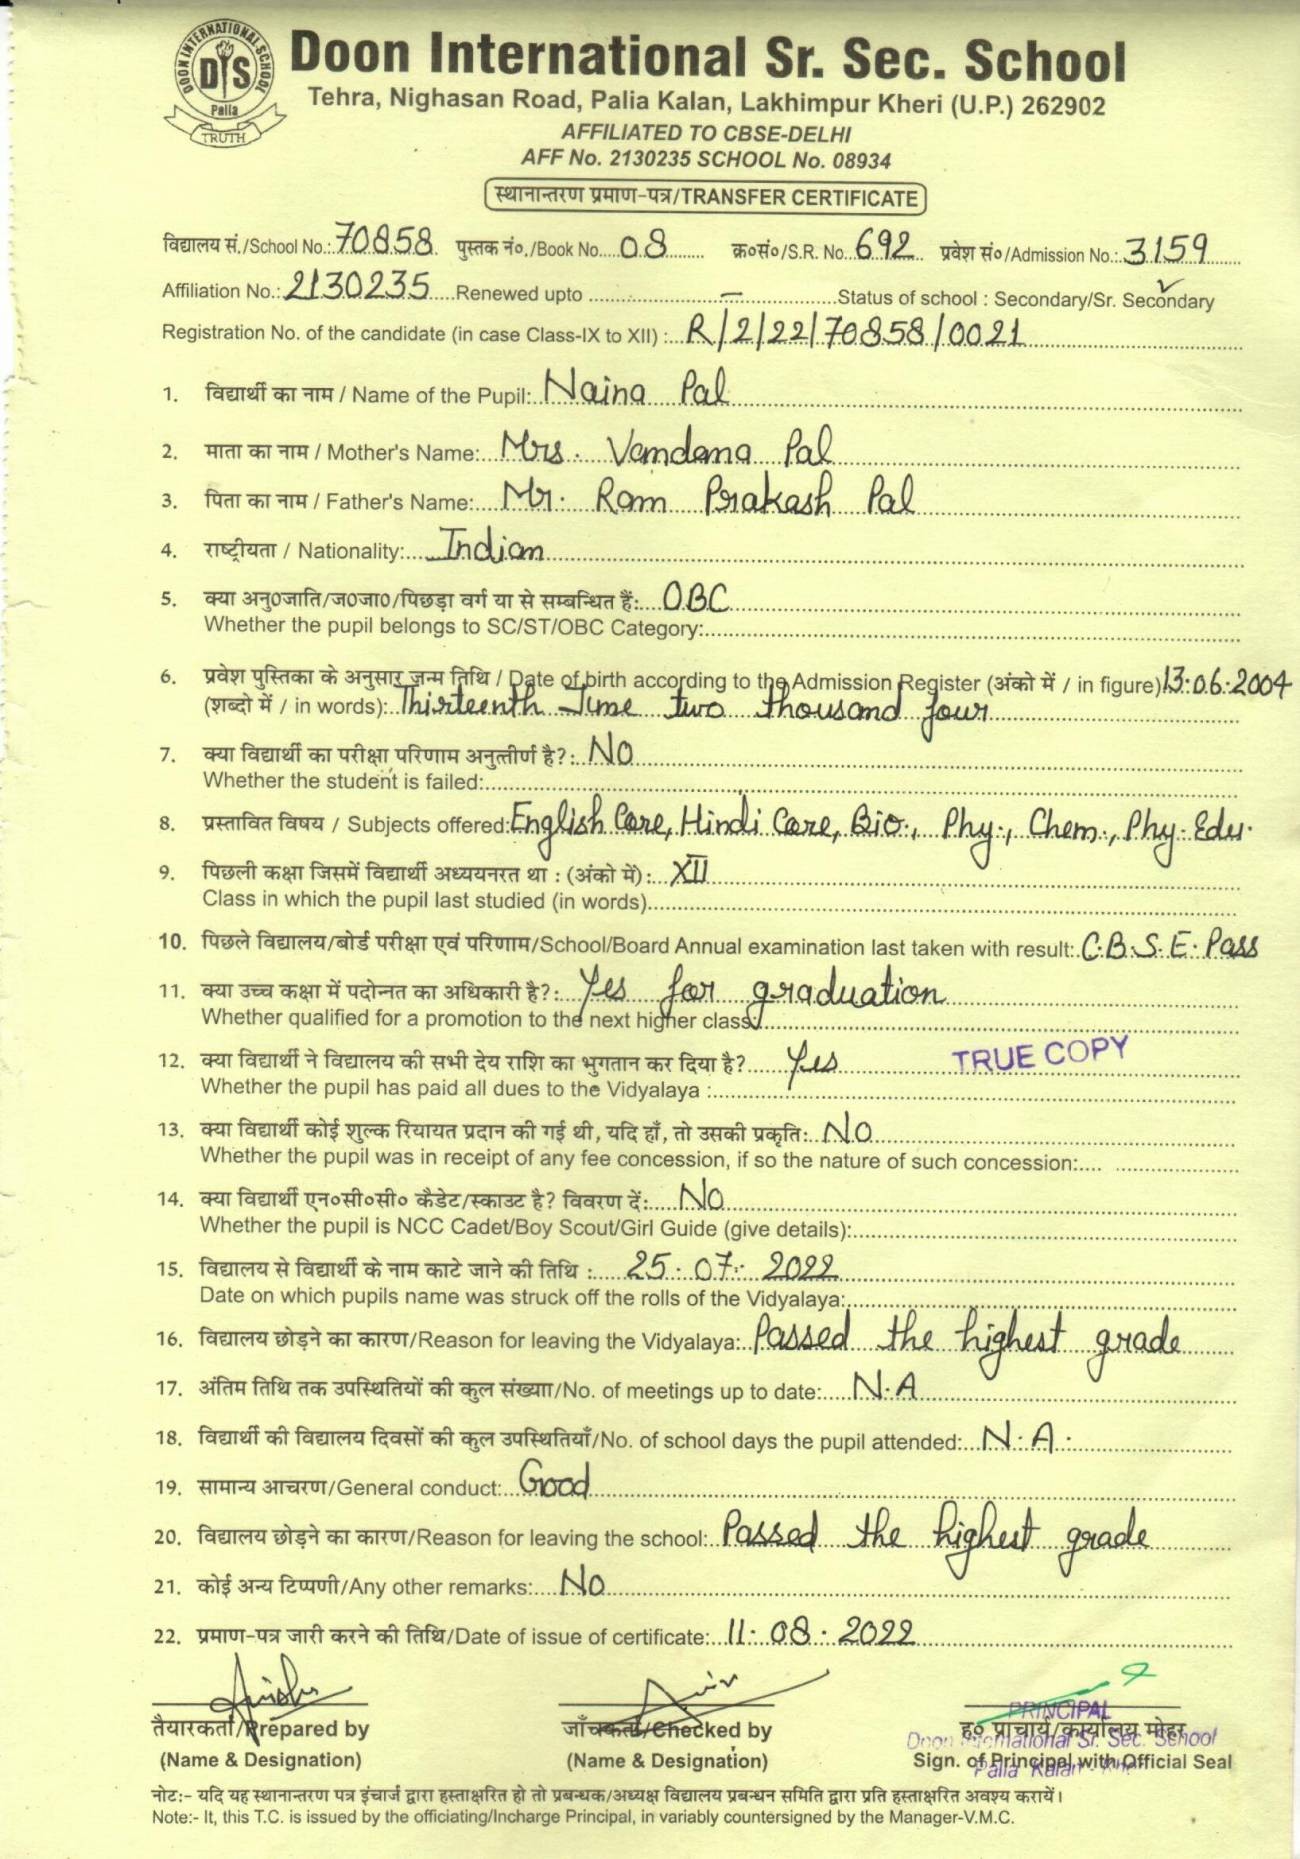 DOON INTERNATIONAL SCHOOL
DIS
Palia
TRUTH
Doon International Sr. Sec. School
Tehra, Nighasan Road, Palia Kalan, Lakhimpur Kheri (U.P.) 262902
AFFILIATED TO CBSE-DELHI
AFF No. 2130235 SCHOOL No. 08934
स्थानान्तरण प्रमाण-पत्र/TRANSFER CERTIFICATE
विद्यालय सं./School No.: 70858 पुस्तक नं०./Book No. 08 क्र०सं०/S.R. No. 692 प्रवेश सं०/Admission No.: 3159
Affiliation No.: 2130235 Renewed upto — Status of school : Secondary/Sr. Secondary ✓
Registration No. of the candidate (in case Class-IX to XII) : R/2/22/70858/0021
1. विद्यार्थी का नाम / Name of the Pupil: Naina Pal
2. माता का नाम / Mother's Name: Mrs. Vandana Pal
3. पिता का नाम / Father's Name: Mr. Ram Prakash Pal
4. राष्ट्रीयता / Nationality: Indian
5. क्या अनु0जाति/ज0जा0/पिछड़ा वर्ग या से सम्बन्धित हैं: OBC
Whether the pupil belongs to SC/ST/OBC Category:
6. प्रवेश पुस्तिका के अनुसार जन्म तिथि / Date of birth according to the Admission Register (अंको में / in figure) 13.06.2004
(शब्दो में / in words): Thirteenth June two thousand four
7. क्या विद्यार्थी का परीक्षा परिणाम अनुत्तीर्ण है?: NO
Whether the student is failed:
8. प्रस्तावित विषय / Subjects offered: English Core, Hindi Core, Bio., Phy., Chem., Phy. Edu.
9. पिछली कक्षा जिसमें विद्यार्थी अध्ययनरत था : (अंको में): XII
Class in which the pupil last studied (in words)
10. पिछले विद्यालय/बोर्ड परीक्षा एवं परिणाम/School/Board Annual examination last taken with result: C.B.S.E. Pass
11. क्या उच्च कक्षा में पदोन्नत का अधिकारी है?: Yes for graduation
Whether qualified for a promotion to the next higher class:
12. क्या विद्यार्थी ने विद्यालय की सभी देय राशि का भुगतान कर दिया है? Yes TRUE COPY
Whether the pupil has paid all dues to the Vidyalaya :
13. क्या विद्यार्थी कोई शुल्क रियायत प्रदान की गई थी, यदि हाँ, तो उसकी प्रकृति: NO
Whether the pupil was in receipt of any fee concession, if so the nature of such concession:
14. क्या विद्यार्थी एन०सी०सी० कैडेट/स्काउट है? विवरण दें: NO
Whether the pupil is NCC Cadet/Boy Scout/Girl Guide (give details):
15. विद्यालय से विद्यार्थी के नाम काटे जाने की तिथि : 25.07.2022
Date on which pupils name was struck off the rolls of the Vidyalaya:
16. विद्यालय छोड़ने का कारण/Reason for leaving the Vidyalaya: Passed the highest grade
17. अंतिम तिथि तक उपस्थितियों की कुल संख्याा/No. of meetings up to date: N.A
18. विद्यार्थी की विद्यालय दिवसों की कुल उपस्थितियाँ/No. of school days the pupil attended: N.A.
19. सामान्य आचरण/General conduct: Good
20. विद्यालय छोड़ने का कारण/Reason for leaving the school: Passed the highest grade
21. कोई अन्य टिप्पणी/Any other remarks: No
22. प्रमाण-पत्र जारी करने की तिथि/Date of issue of certificate: 11.08.2022
तैयारकर्ता/Prepared by जाँचकर्ता/Checked by ह० प्राचार्य/कार्यालय मोहर
(Name & Designation) (Name & Designation) Sign. of Principal with Official Seal
PRINCIPAL
Doon International Sr. Sec. School
Palia Kalan - Kheri
नोटः- यदि यह स्थानान्तरण पत्र इंचार्ज द्वारा हस्ताक्षरित हो तो प्रबन्धक/अध्यक्ष विद्यालय प्रबन्धन समिति द्वारा प्रति हस्ताक्षरित अवश्य करायें।
Note:- It, this T.C. is issued by the officiating/Incharge Principal, in variably countersigned by the Manager-V.M.C.